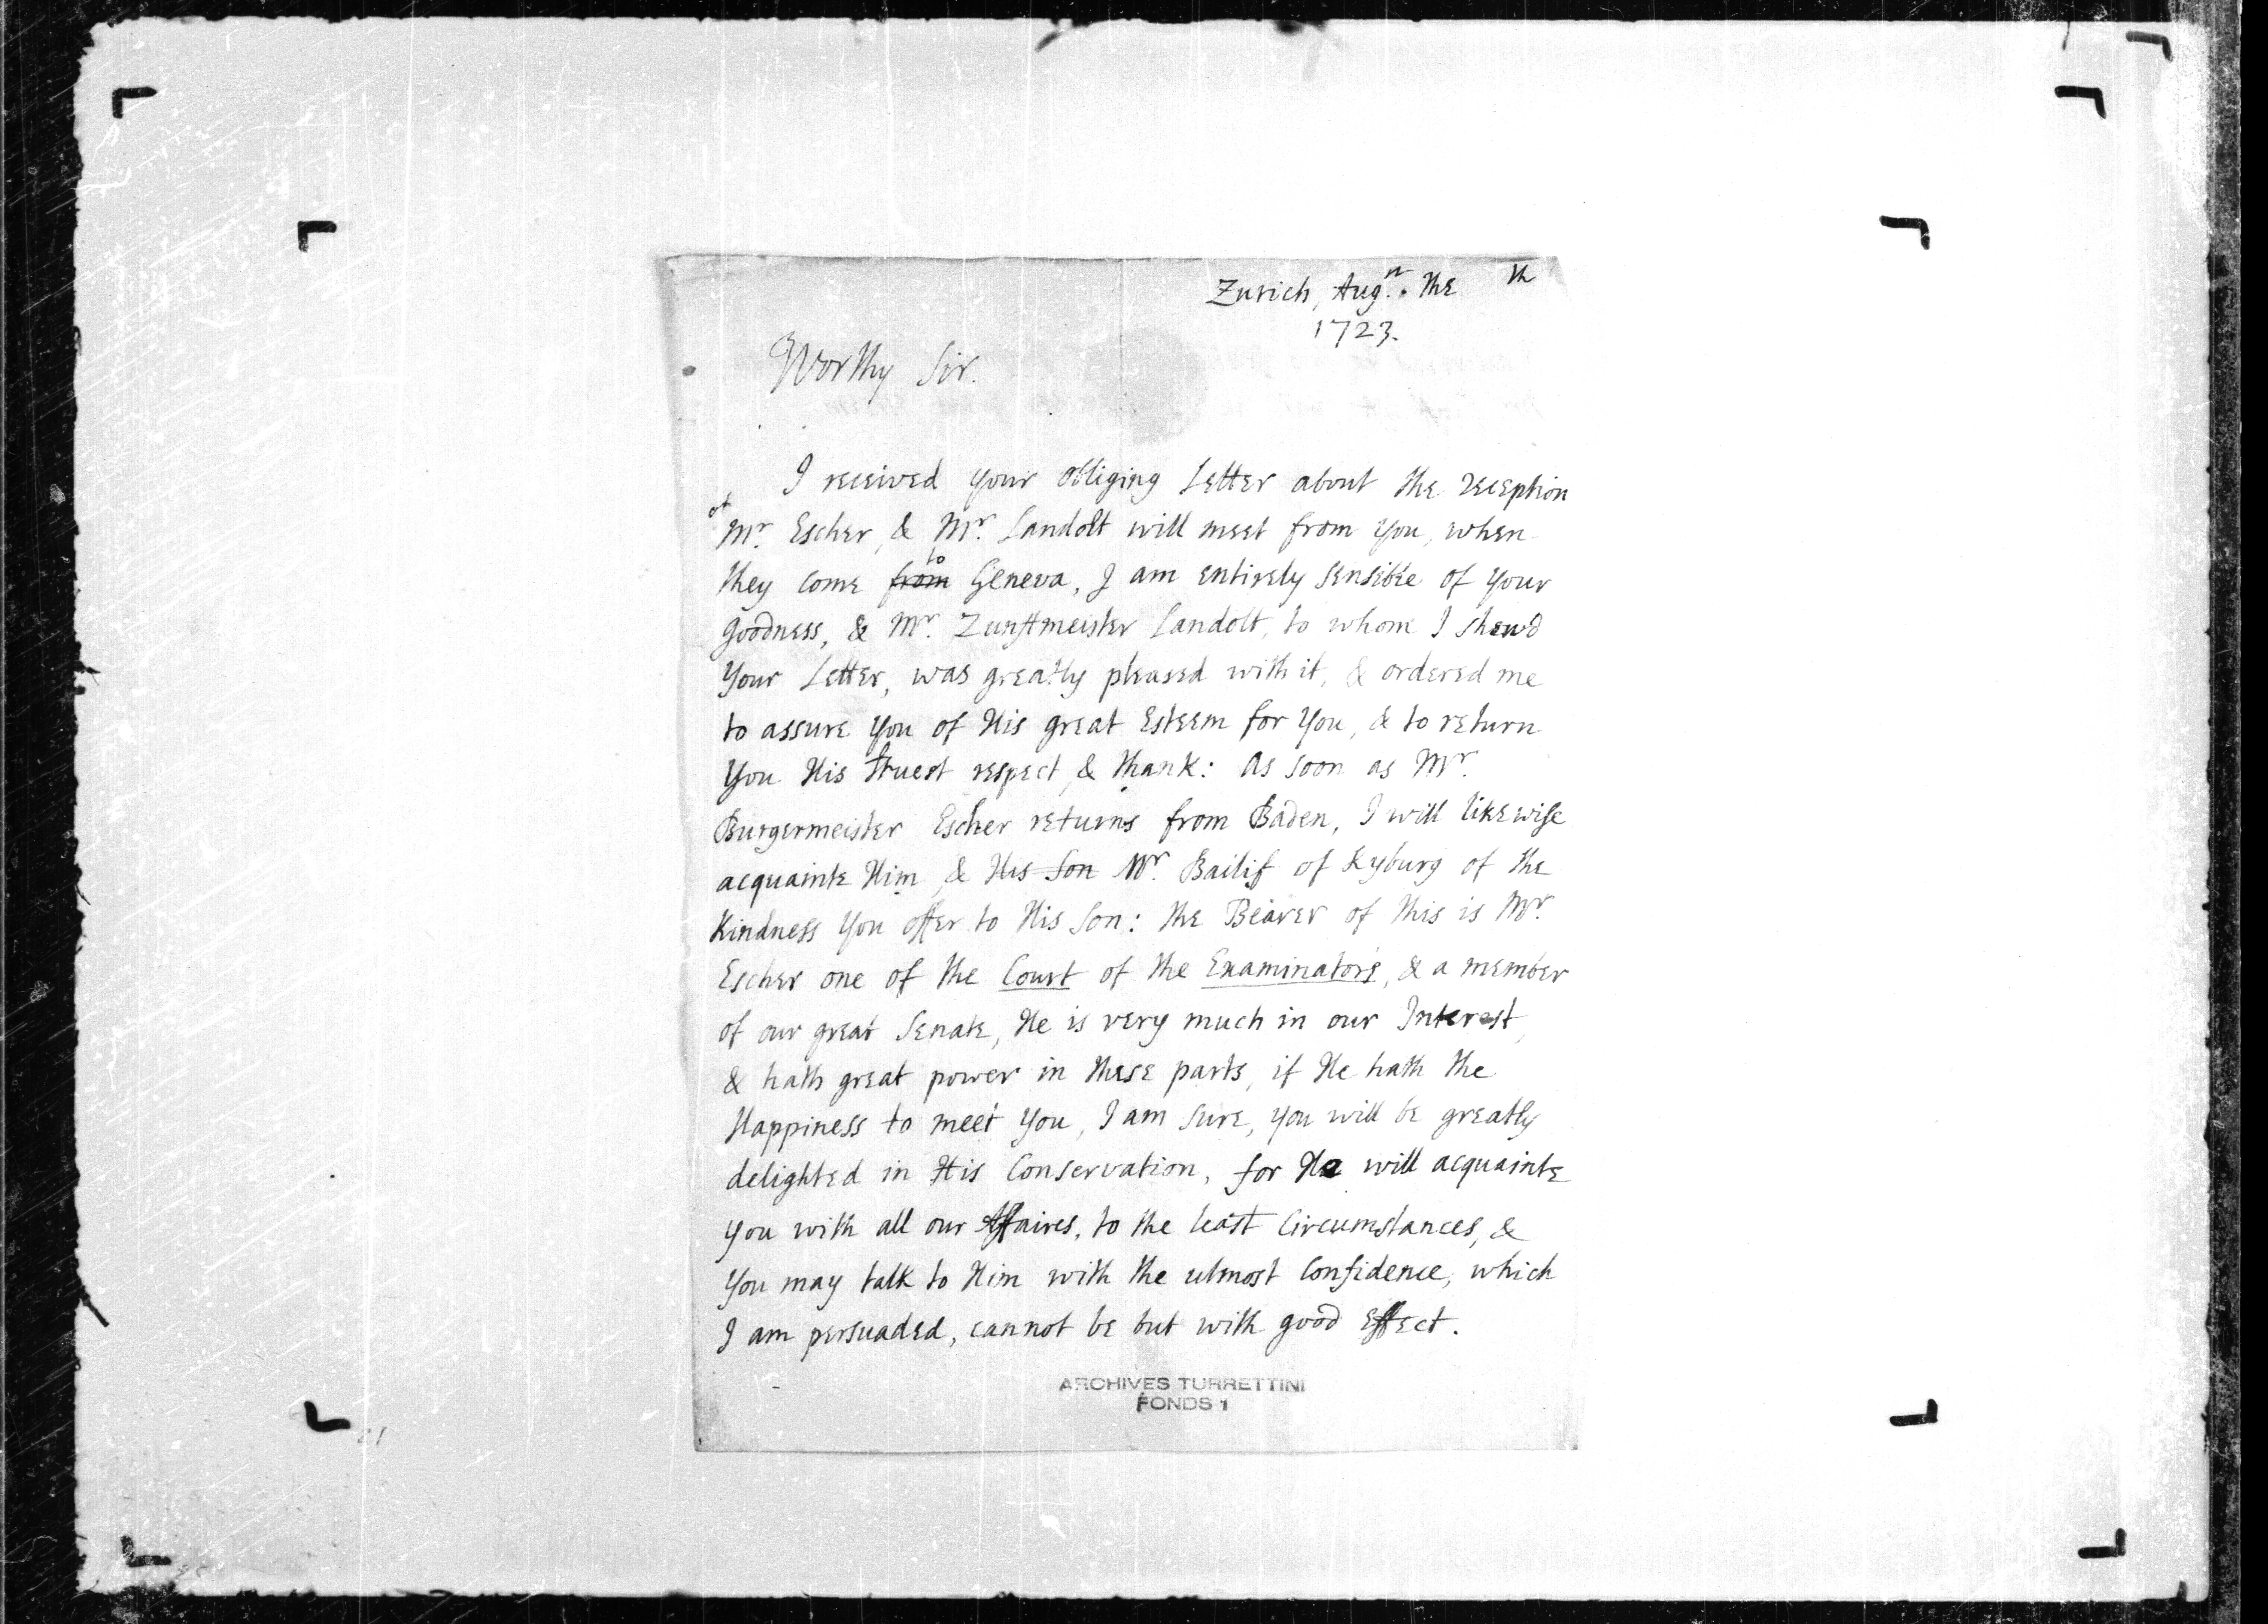 Zurich, Augst. the th
1723.
Worthy Sir.
I received your obliging Letter about the reception
of Mr. Escher, & Mr. Landolt will meet from you, when
they come from to Geneva, I am entirely sensible of your
goodness, & Mr. Zunftmeister Landolt, to whom I shewd
your Letter, was greatly pleased with it, & ordered me
to assure you of His great Esteem for you, & to return
you His truest respect, & thank: As soon as Mr.
Burgermeister Escher returns from Baden, I will likewise
acquainte Him, & His Son Mr. Bailif of Kyburg of the
Kindness you offer to His Son: the Bearer of this is Mr.
Escher one of the Court of the Examinators, & a member
of our great Senate, He is very much in our Interest,
& hath great power in these parts, if He hath the
Happiness to meet you, I am sure, you will be greatly
delighted in His Conservation, for He will acquainte
you with all our Affaires, to the least Circumstances, &
you may talk to Him with the utmost Confidence, which
I am persuaded, cannot be but with good Effect.
ARCHIVES TURRETTINI
FONDS 1
21